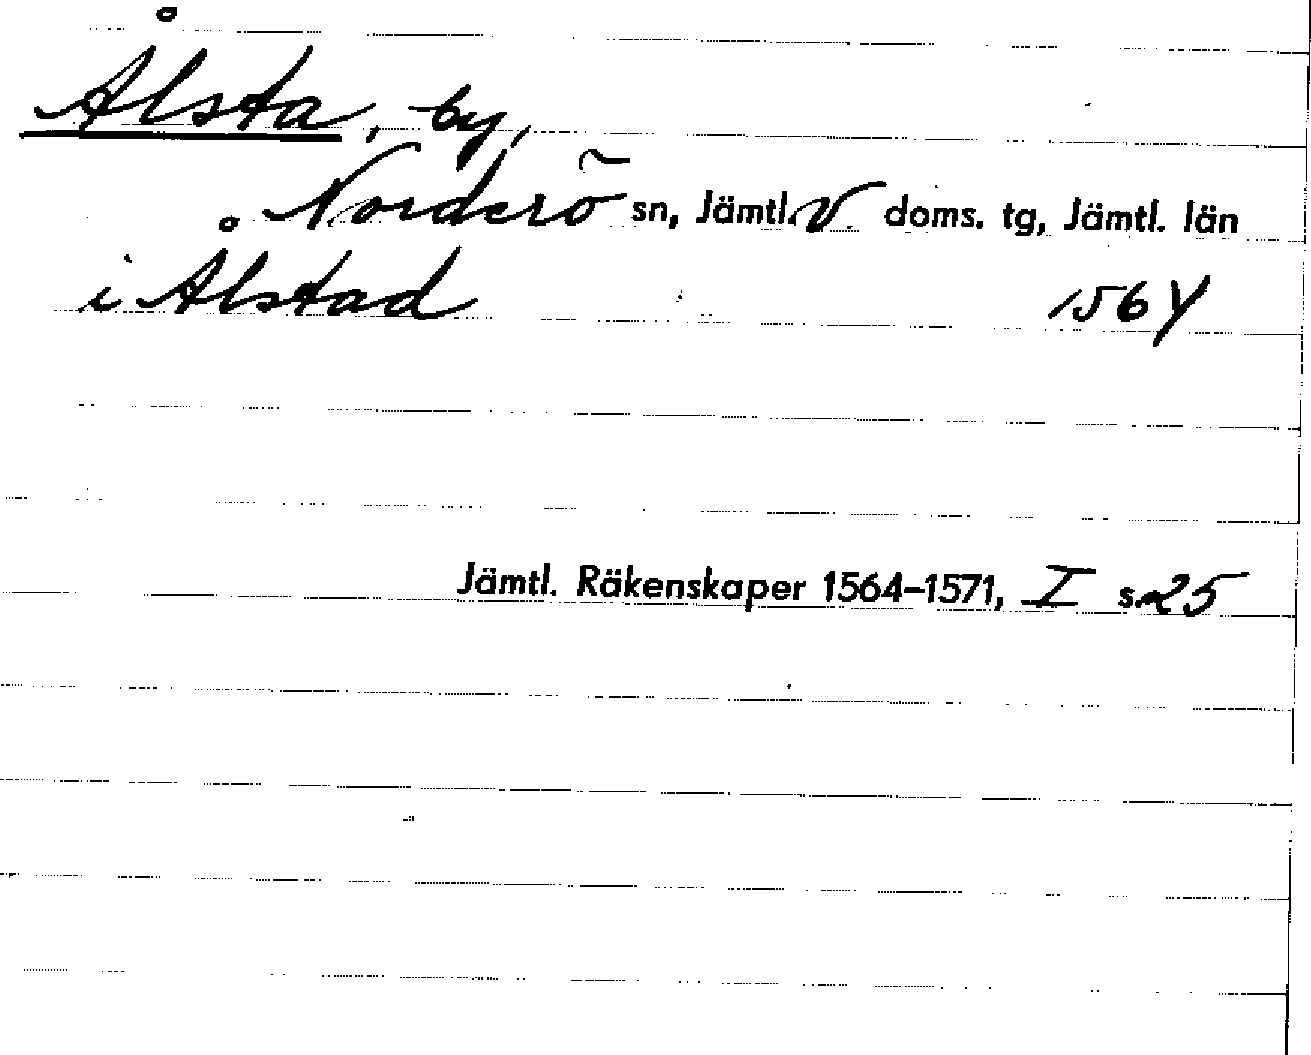 Ålsta, by,
Norderö sn, Jämtl. V. doms. tg, Jämtl. län
i Ålstad 1564
Jämtl. Räkenskaper 1564-1571, I s. 25